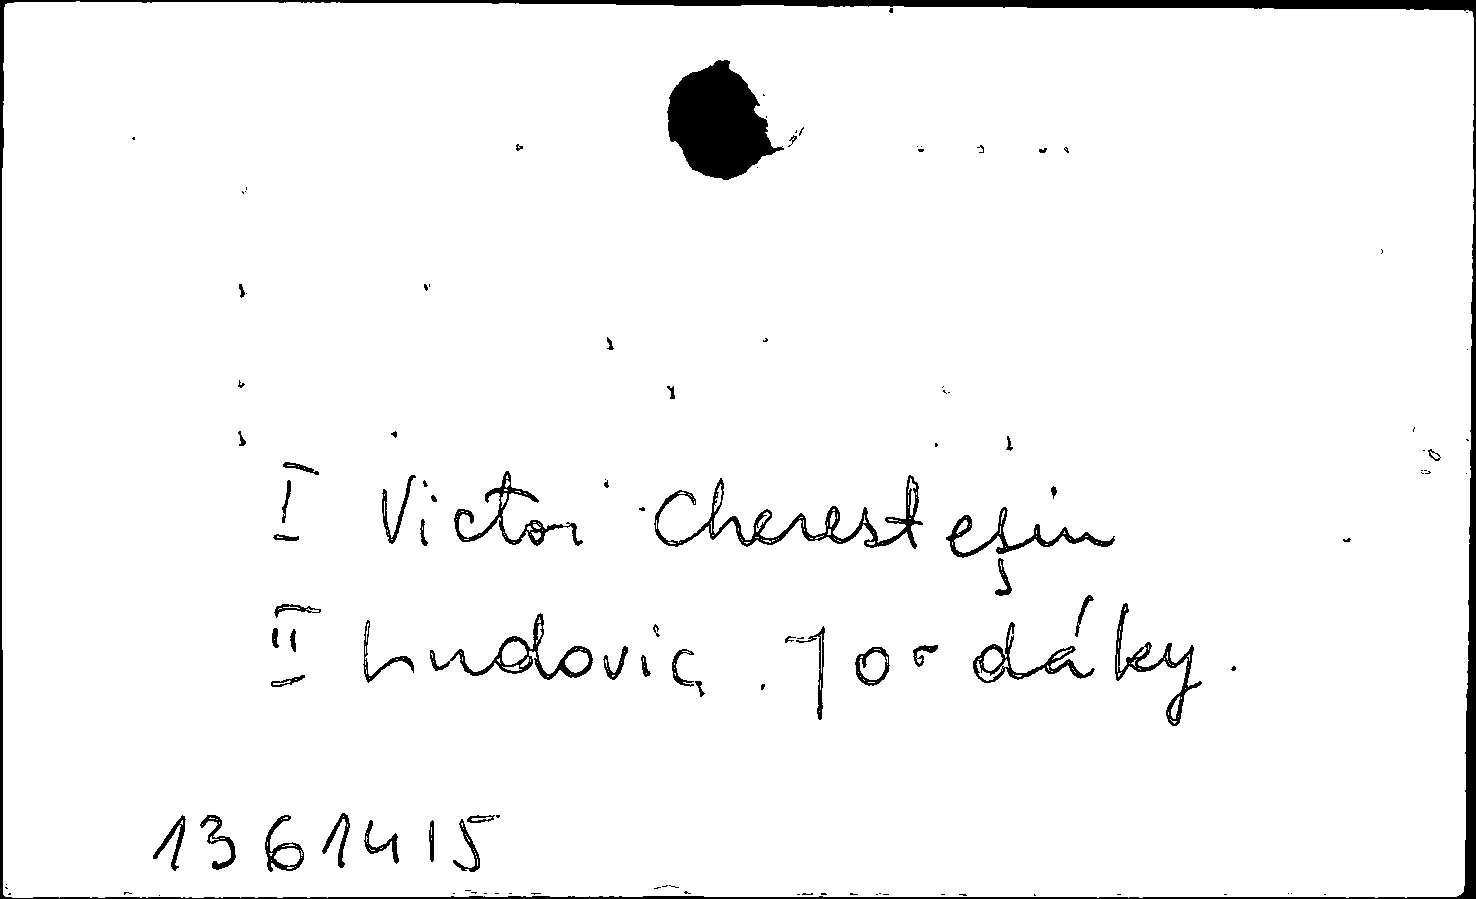 I Victor Cheresteşiu
II Ludovic Jordáky.
1361415